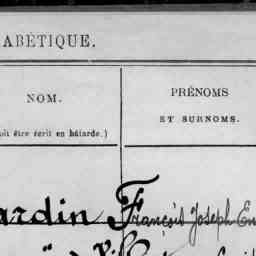 ABÉTIQUE.
NOM.
PRÉNOMS
ET SURNOMS.
oit être écrit en bâtarde.)
ardin François Joseph